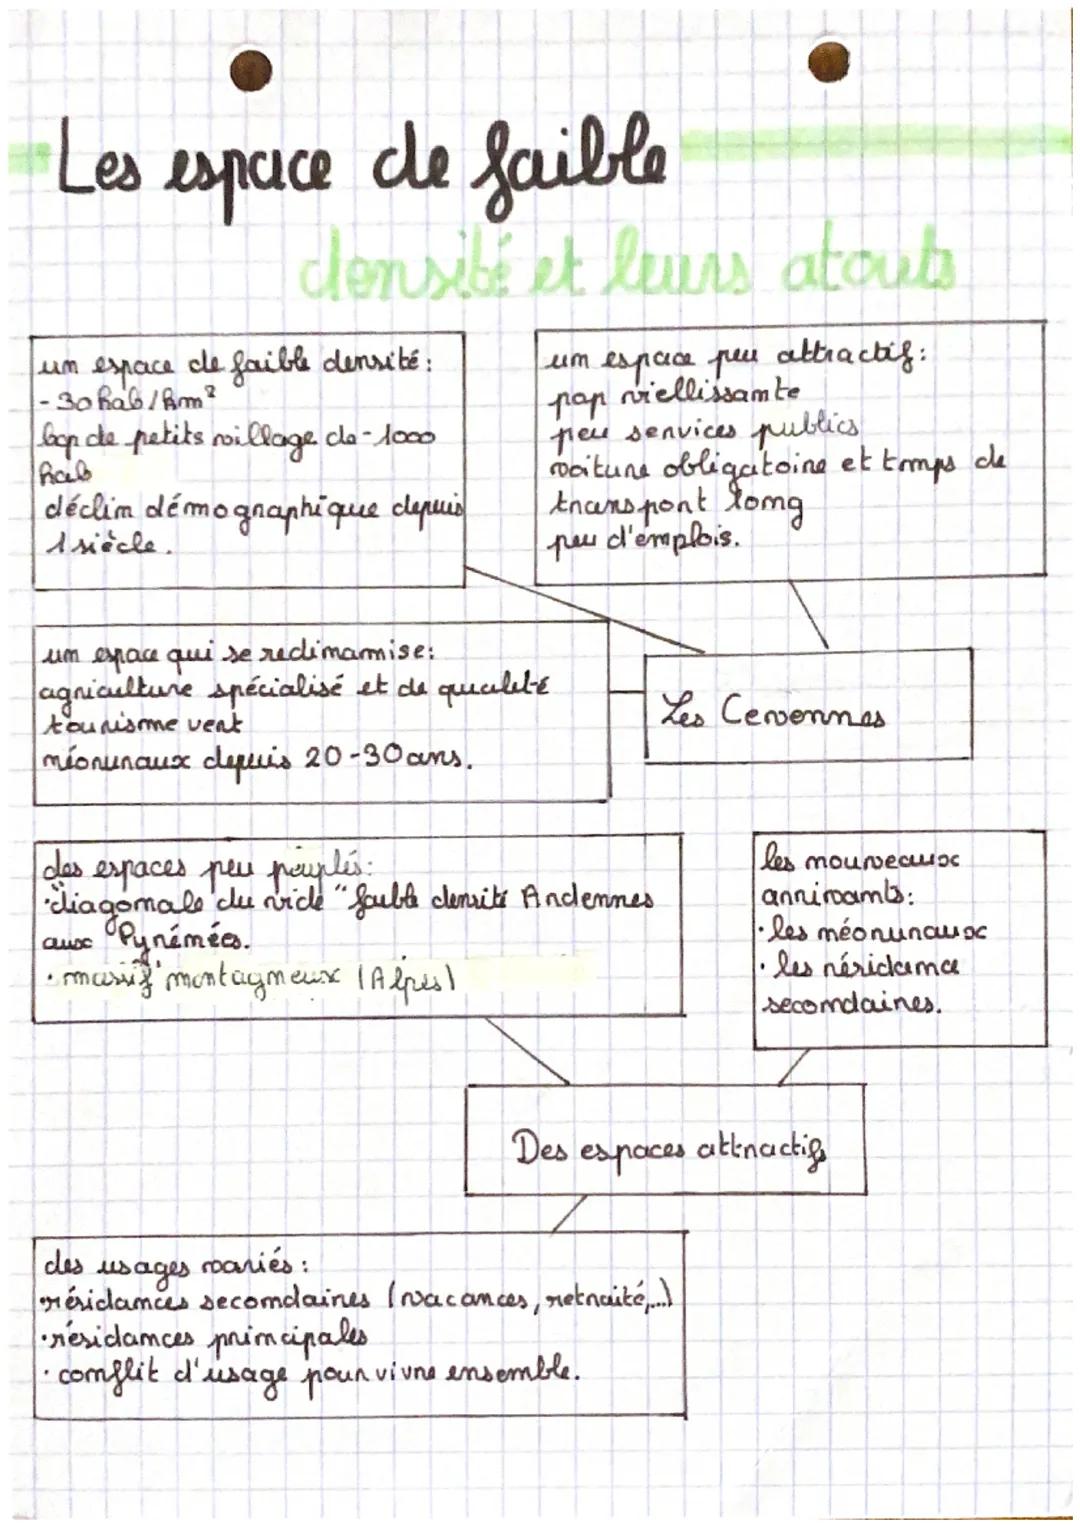 Les espace de faible
densité et leurs atouts
un espace de faible densité:
- 30 hab/km²
bcp de petits village de -1000
hab
déclin démographique depuis
1 siècle.
un espace peu attractif:
pop viellissante
peu services publics
voiture obligatoire et temps de
transport long
peu d'emplois.
un espace qui se redinamise:
agriculture spécialisé et de qualité
tourisme vert
néoruraux depuis 20-30 ans.
Les Cevennes
des espaces peu peuplés:
"diagonale du vide" faible densité Ardennes
aux Pyrénées.
· massif montagneux (Alpes)
les nouveaux
arrivants:
· les néoruraux
· les résidance
secondaires.
Des espaces attractifs
des usages variés:
·résidances secondaires (vacances, retraité,...)
·résidances principales
· conflit d'usage pour vivre ensemble.